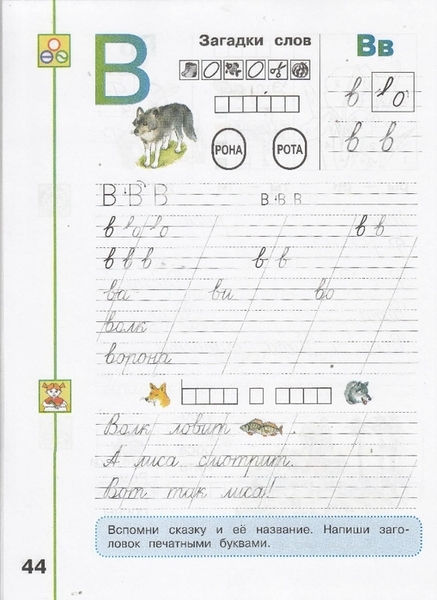 В
Загадки слов
Вв
в во
в в
РОНА
РОТА
В В В В В В
в во во в в
в в в в в
ва ви во
волк
ворона
Волк ловит .
А лиса смотрит.
Вот так лиса!
Вспомни сказку и её название. Напиши заго-
ловок печатными буквами.
44